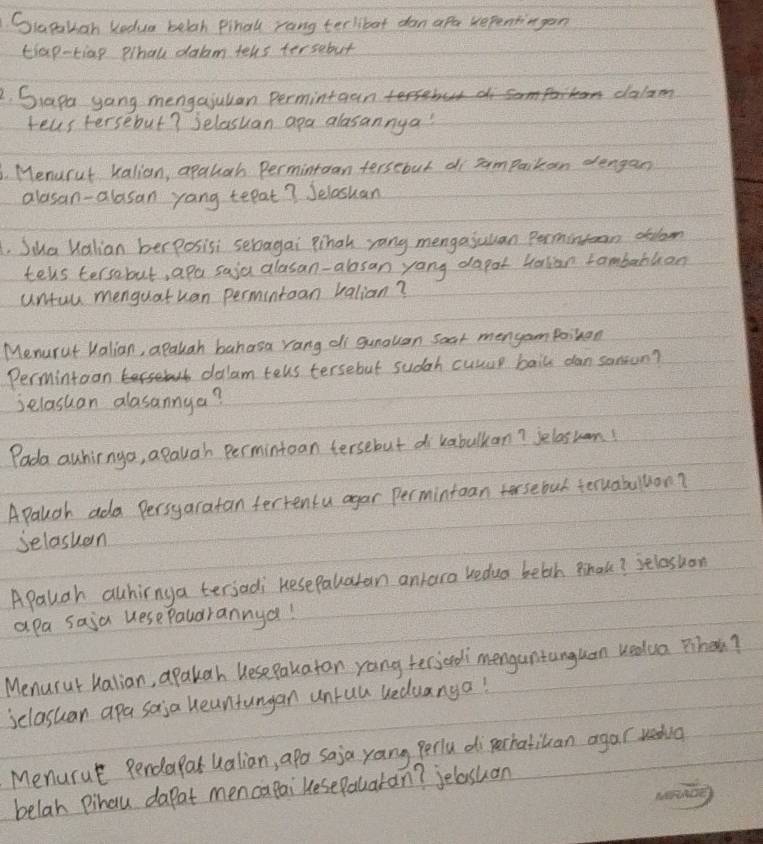 1. Siapakah kedua belah Pihak yang terlibat dan apa kepentingan
tiap-tiap Pihak dalam teks tersebut
2. Siapa yang mengajukan Permintaan tersebut di sampaikan dalam
teks tersebut? Jelaskan apa alasannya!
3. Menurut kalian, apakah Permintaan tersebut di sampaikan dengan
alasan-alasan yang tepat? Jelaskan
4. Jika kalian berposisi sebagai Pihak yang mengajukan Permintaan dalam
teks tersebut, apa saja alasan-alasan yang dapat kalian tambahkan
untuk menguatkan permintaan kalian?
Menurut kalian, apakah bahasa yang di gunakan saat menyampaikan
Permintaan tersebut dalam teks tersebut sudah cukup baik dan santun?
jelaskan alasannya?
Pada akhirnya, apakah permintaan tersebut di kabulkan? jelaskan!
Apakah ada Persyaratan tertentu agar Permintaan tersebut terkabulkan?
Jelaskan
Apakah akhirnya terjadi kesepakatan antara kedua belah Pihak? jelaskan
apa saja kesepakatannya!
Menurut kalian, apakah kesepakatan yang terjadi menguntungkan kedua Pihak?
jelaskan apa saja keuntungan untuk keduanya!
Menurut Pendapat kalian, apa saja yang Perlu di perhatikan agar kedua
belah Pihak dapat mencapai kesepakatan? jelaskan
MIRAGE